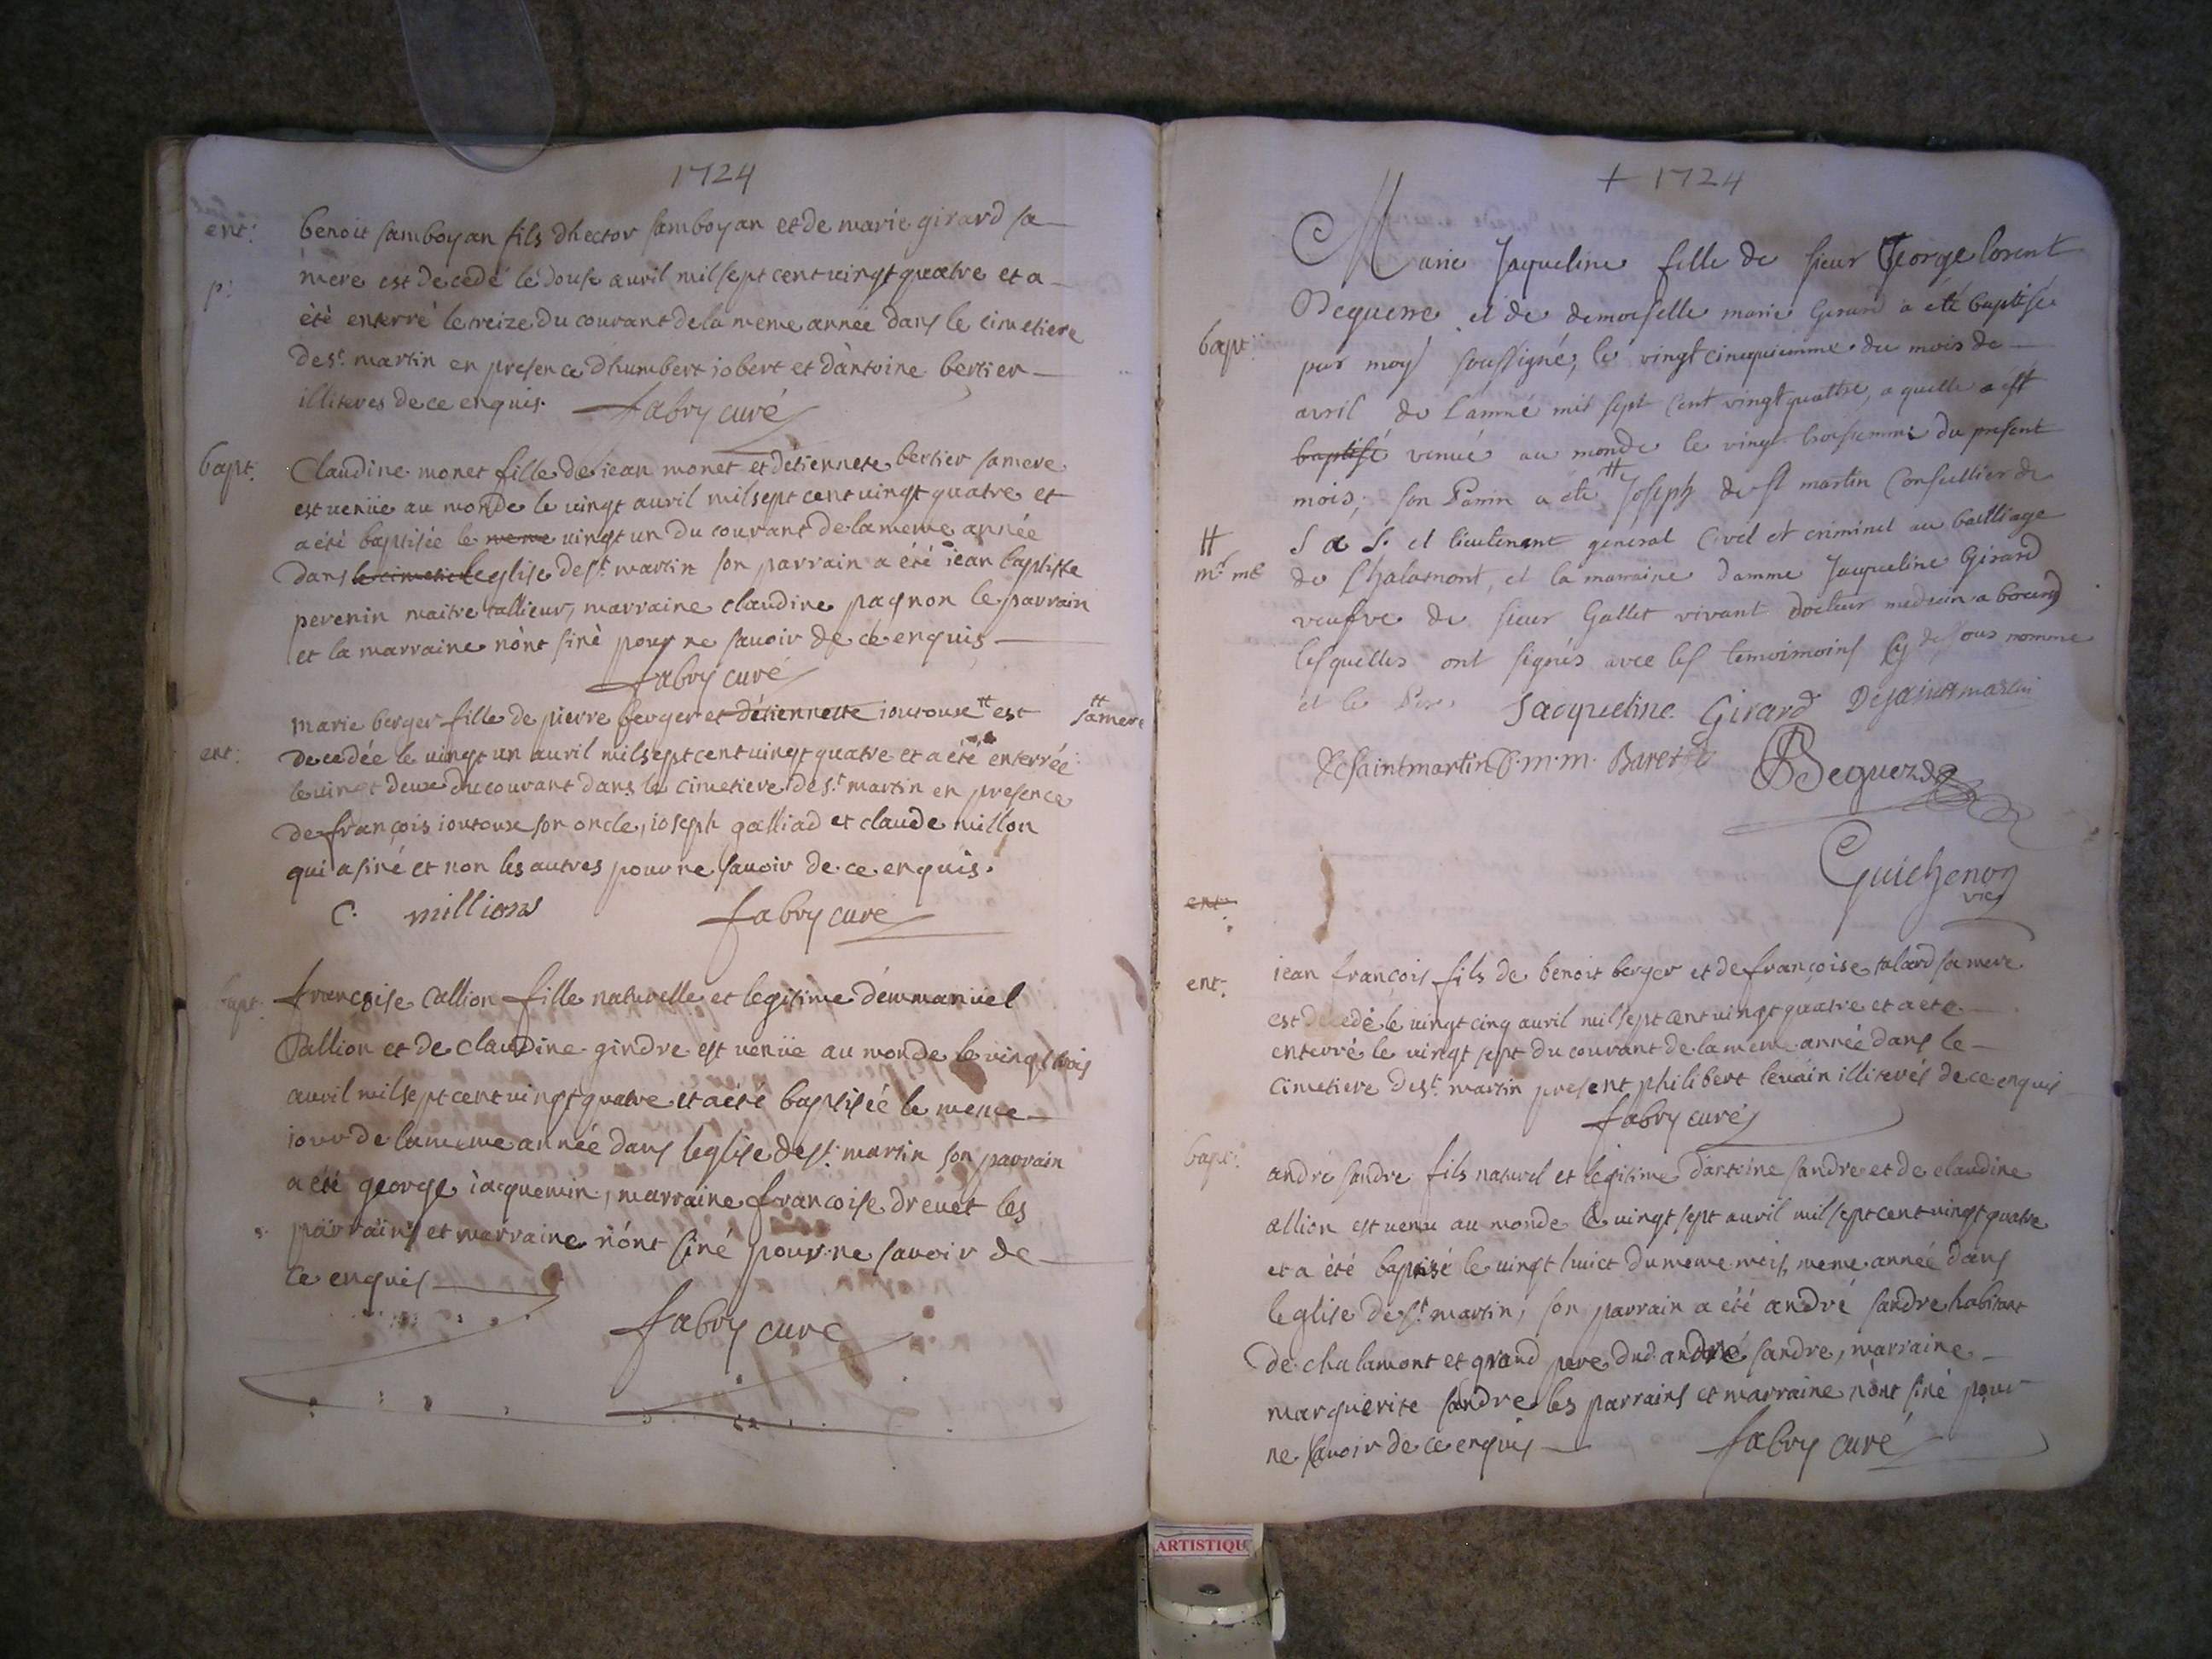 1724
ent: benoit samboyan fils dhector samboyan et de marie girard sa
p: mere est decedé le douse auril mil sept cent uingt quatre et a
èté enterré le treize du courant de la meme année dans le cimetiere
de st. martin en presence dhumbert iobert et dàntoine bertier
illiteres de ce enquis. fabry curé
bapt. Claudine monet fille de iean monet et détiennete bertier sa mere
est venüe au monde le uingt auril mil sept cent uingt quatre et
a été baptisée le meme uingt un du courant de la meme année
dans le cimetie leglise de st. martin son parrain a été iean baptiste
perenin maitre tallieur, marraine claudine pagnon le parrain
et la marraine nònt sinè pour ne sauoir de ce enquis
fabry curé
marie berger fille de pierre berger et détiennette ioutoux # est # sa mere
ent: decedée le uingt un auril mil sept cent uingt quatre et a été enterrée
le uingt deux du courant dans le cimetiere de st. martin en presence
de françois ioutoux son oncle, ioseph galliad et claude millon
qui a siné et non les autres pour ne sauoir de ce enquis.
C. millions fabry curé
bapt. francoise callion fille naturelle et legitime démmanüel
Callion et de claudine gindre est venüe au monde le uingt trois
auril mil sept cent uingt quatre et a été baptisée le meme
iour de la meme année dans leglise de st. martin son parrain
a été george iacquemin, marraine francoise dreuet les
parrains et marraine n'ónt siné pour ne sauoir de
ce enquis
fabry curé
+ 1724
Marie Jaqueline fille de sieur George lorent
Deguerre et de demoiselle marie Gerard a eté baptisée
bapt: par moy soussigné, le vingt cinquiemme du mois de
avril de lanné mil sept cent vingt quattre, a quelle a est
baptisé venüe au monde le vingt troisiemme du present
mois, son Parin a eté # Joseph de st martin Conseillier de
# S a S. et lieutenant general Civil et criminel au bailliage
mr. me de Chalamont, et la marraine damme Jacqueline Girard
veufve de sieur Gallet vivant docteur medecin a bourg
lesquelles ont signés avec les temoimoins cy dessous nomme
et le Per. Jacqueline Girard Desaintmartin
Desaintmartin D.m.m. Deguerre
Guichenon
vic
ent:
ent: iean françois fils de benoit berger et de françoise talard sa mere
est decedé le uingt cinq auril mil sept cent uingt quatre et a eté
enterré le uingt sept du courant de la meme année dans le
cimetiere de st. martin present philibert leuain illiterés de ce enquis
fabry curé
bapt: andré sandre fils naturel et legitime dàntoine sandre et de claudine
allion est venu au monde le uingt sept auril mil sept cent uingt quatre
et a été baptisé le uingt huict du meme mois, meme année dans
leglise de st. martin, son parrain a été andré sandre habitant
de chalamont et grand pere dud. andré sandre, marraine
marguerite sandre les parrains et marraine nònt siné pour
ne sauoir de ce enquis fabry curé
ARTISTIQU